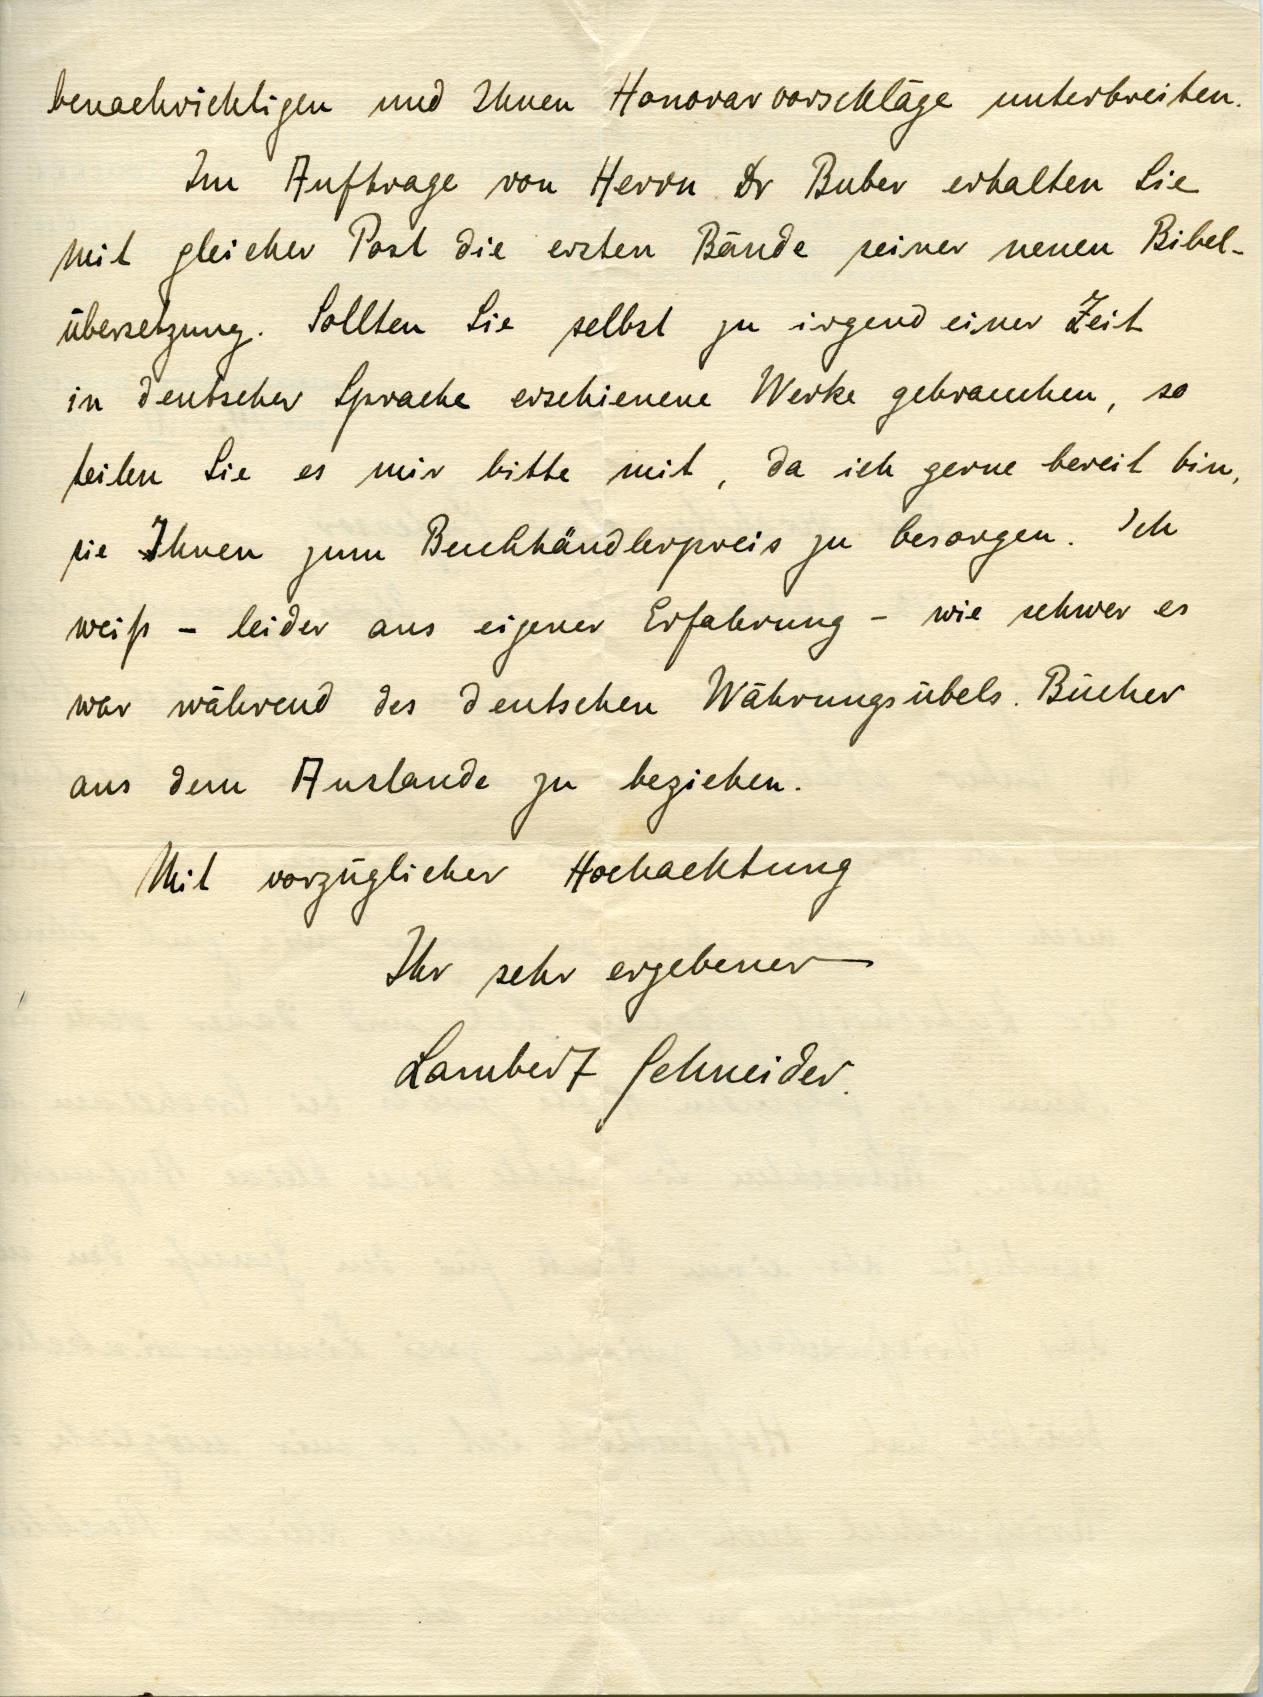 benachrichtigen und Ihnen Honorarvorschläge unterbreiten.
Im Auftrage von Herrn Dr Buber erhalten Sie
mit gleicher Post die ersten Bände seiner neuen Bibel-
übersetzung. Sollten Sie selbst zu irgend einer Zeit
in deutscher Sprache erschienene Werke gebrauchen, so
teilen Sie es mir bitte mit, da ich gerne bereit bin,
sie Ihnen zum Buchhändlerpreis zu besorgen. Ich
weiß – leider aus eigener Erfahrung – wie schwer es
war während des deutschen Währungsübels. Bücher
aus dem Auslande zu beziehen.
Mit vorzüglicher Hochachtung
Ihr sehr ergebener
Lambert Schneider.